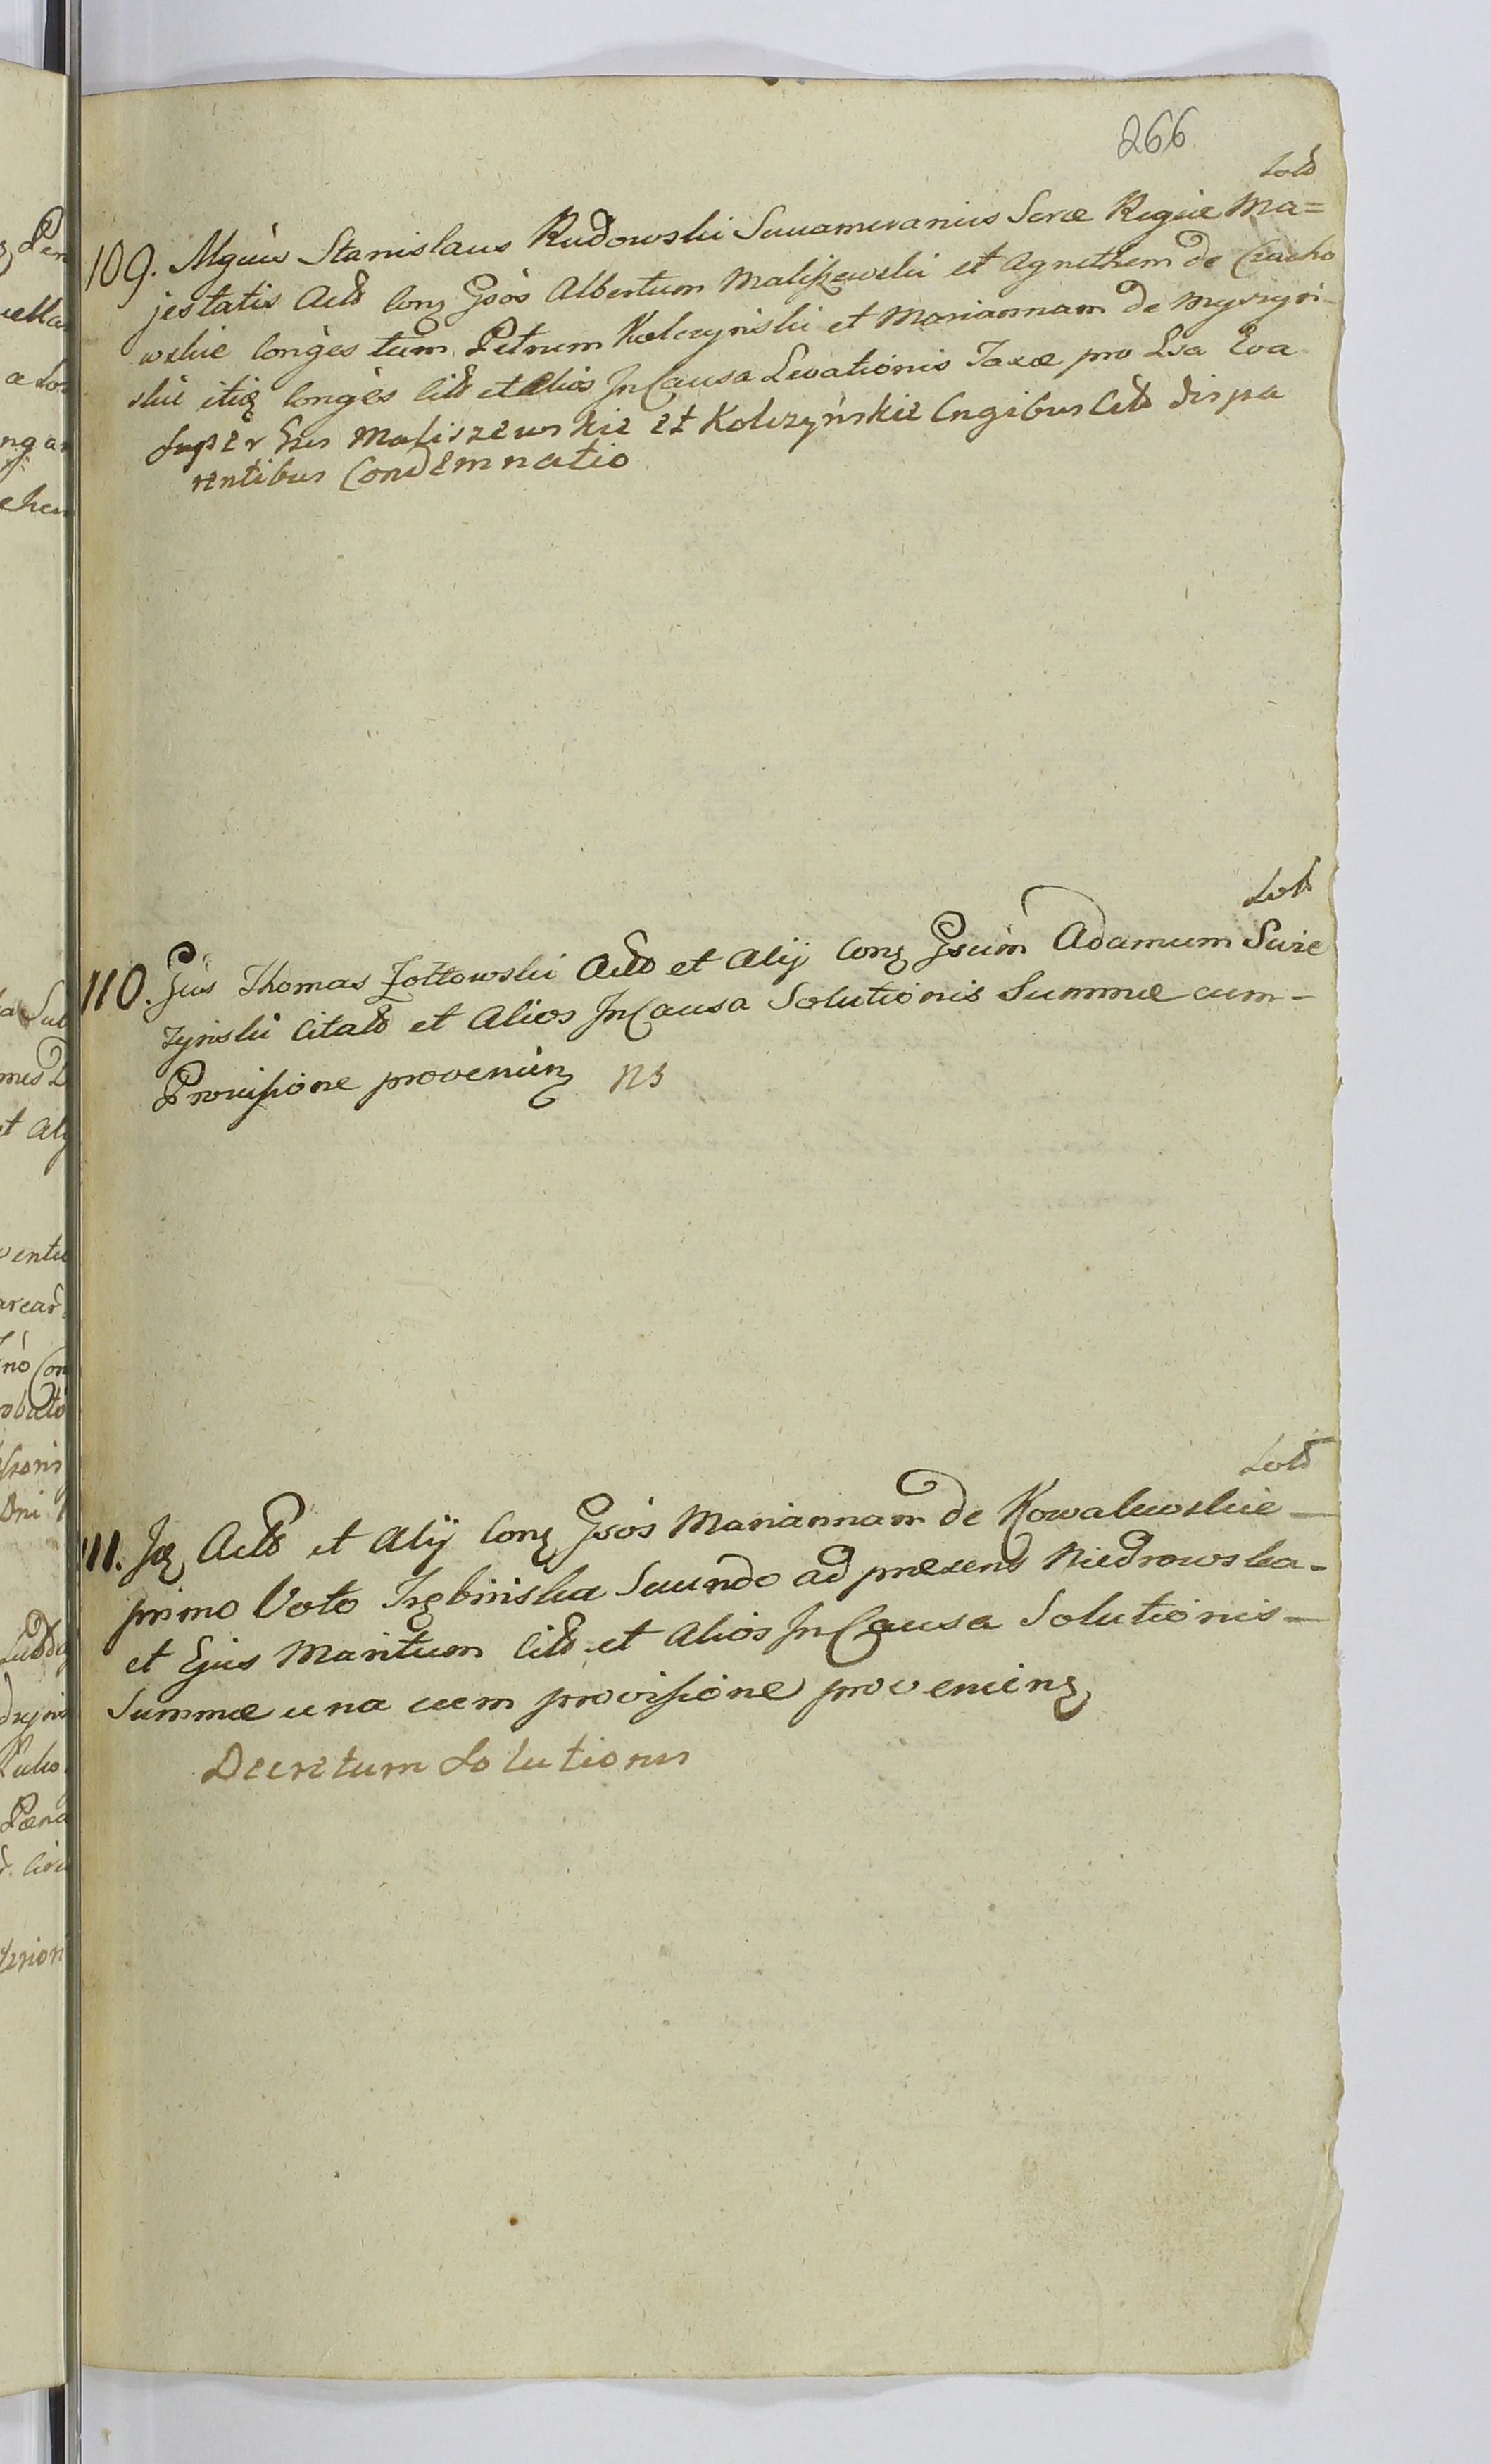 266
109. Mgcus Stanislaus Rudowski Succamerarius Sacræ Regiæ Ma=
jestatis Actb Conz Gsos Albertum Maliszewski et Agnethem de Czacho
wskie Conges tum Petrum Kolczynski et Mariannam de Myszyn-
skie itiq Conges Citb et Alios In Causa Levationis Taxæ pro Lsa Eva
Super Gsis Maliszewskie et Kolczyńskie Cngibus Citb dispa
rentibus Condemnatio
110. Gsus Thomas Zołtowski Actb et Alij Conz Gsum Adamum Swie
zynski Citatb et Alios In Causa Solutionis Summæ cum-
Provisione provenienz Ns
111. Iz Actb et Alij Conz Gsos Mariannam de Kowalewskie-
primo Voto Trębinska Secundo ad præsens Niedrowska-
et Ejus Maritum Citb et Alios In Causa Solutionis-
Summæ una cum provisione provenienz
Decretum Solutionis